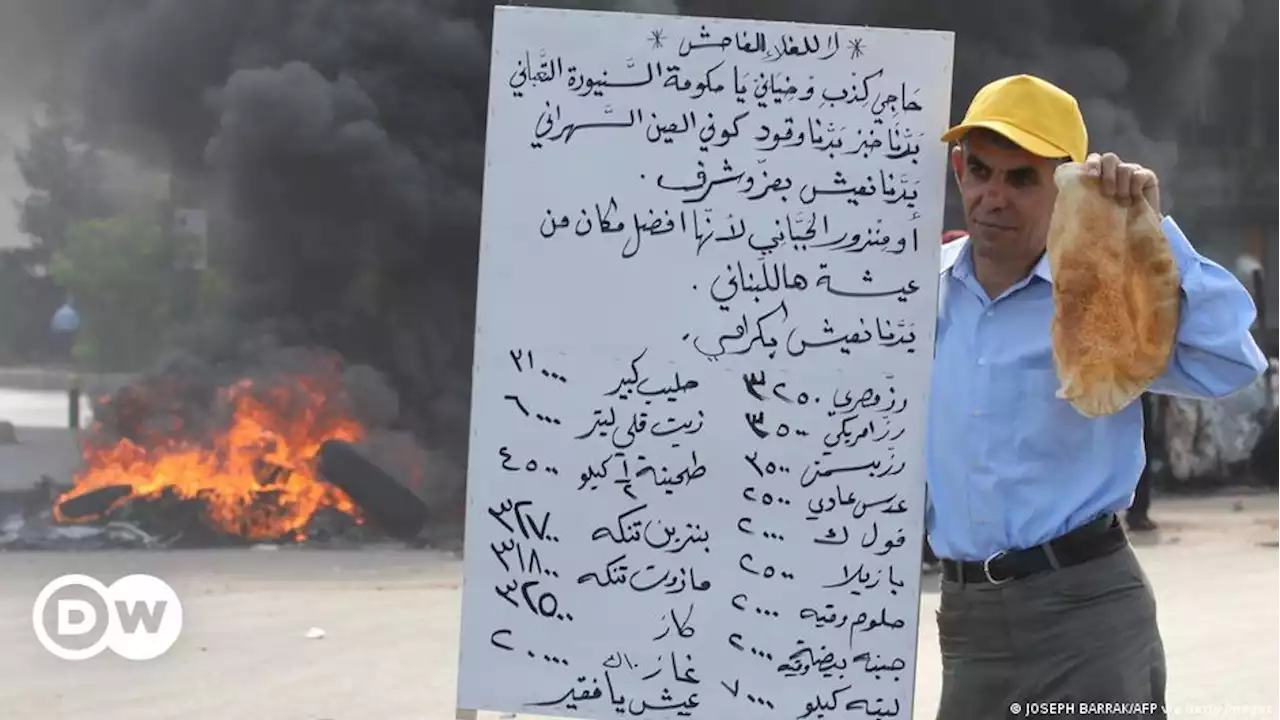 * لا للغلاء الفاحش *
حَاجِي كَذِب وَخيَانِي يَا حكومة السَّنيورة التَّعباني
بَدْنا خبز بَدْنا وقود كوني العين السَّهراني
بَدَّنا نعيش بعزّ وشرف .
أو مِنْزور الجَبَّانِي لأنّها افضل مكان من
عيشة هاللّبناني .
بَدَّنا نعيش بكرامي .
رز مصري ٣٢٥٠
رز امريكي ٣٥٠٠
رز بسمتي ٣٥٠٠
عدس عادي ٢٥٠٠
فول ك ٢٠٠٠
بازيلا ٢٥٠٠
حلوم وقيه ٢٠٠٠
جبنه بيضة وقيه ٢٠٠٠
لبنه كيلو ٧٠٠٠
حليب كبير ٢١٠٠٠
زيت قلي ليتر ٦٠٠٠
طحينة ١/٢ كيلو ٤٥٠٠
بنزين تنكه ٣٢٧٠٠
مازوت تنكه ٣١٨٠٠
كاز ٣٢٥٠٠
غاز ١٠ ك ٢٠٠٠٠
عيش يا فقير
DW
© JOSEPH BARRAK/AFP via Getty Images